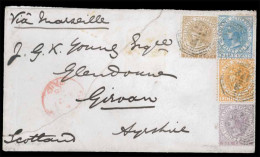 Via Marseille
J. G. K. Young Esqre
Glendoune
Girvan
Ayrshire
Scotland